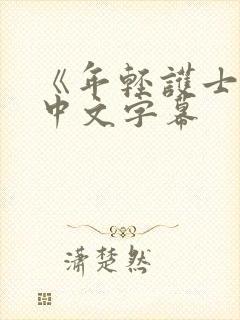 《年轻護士
中文字幕
潇楚然